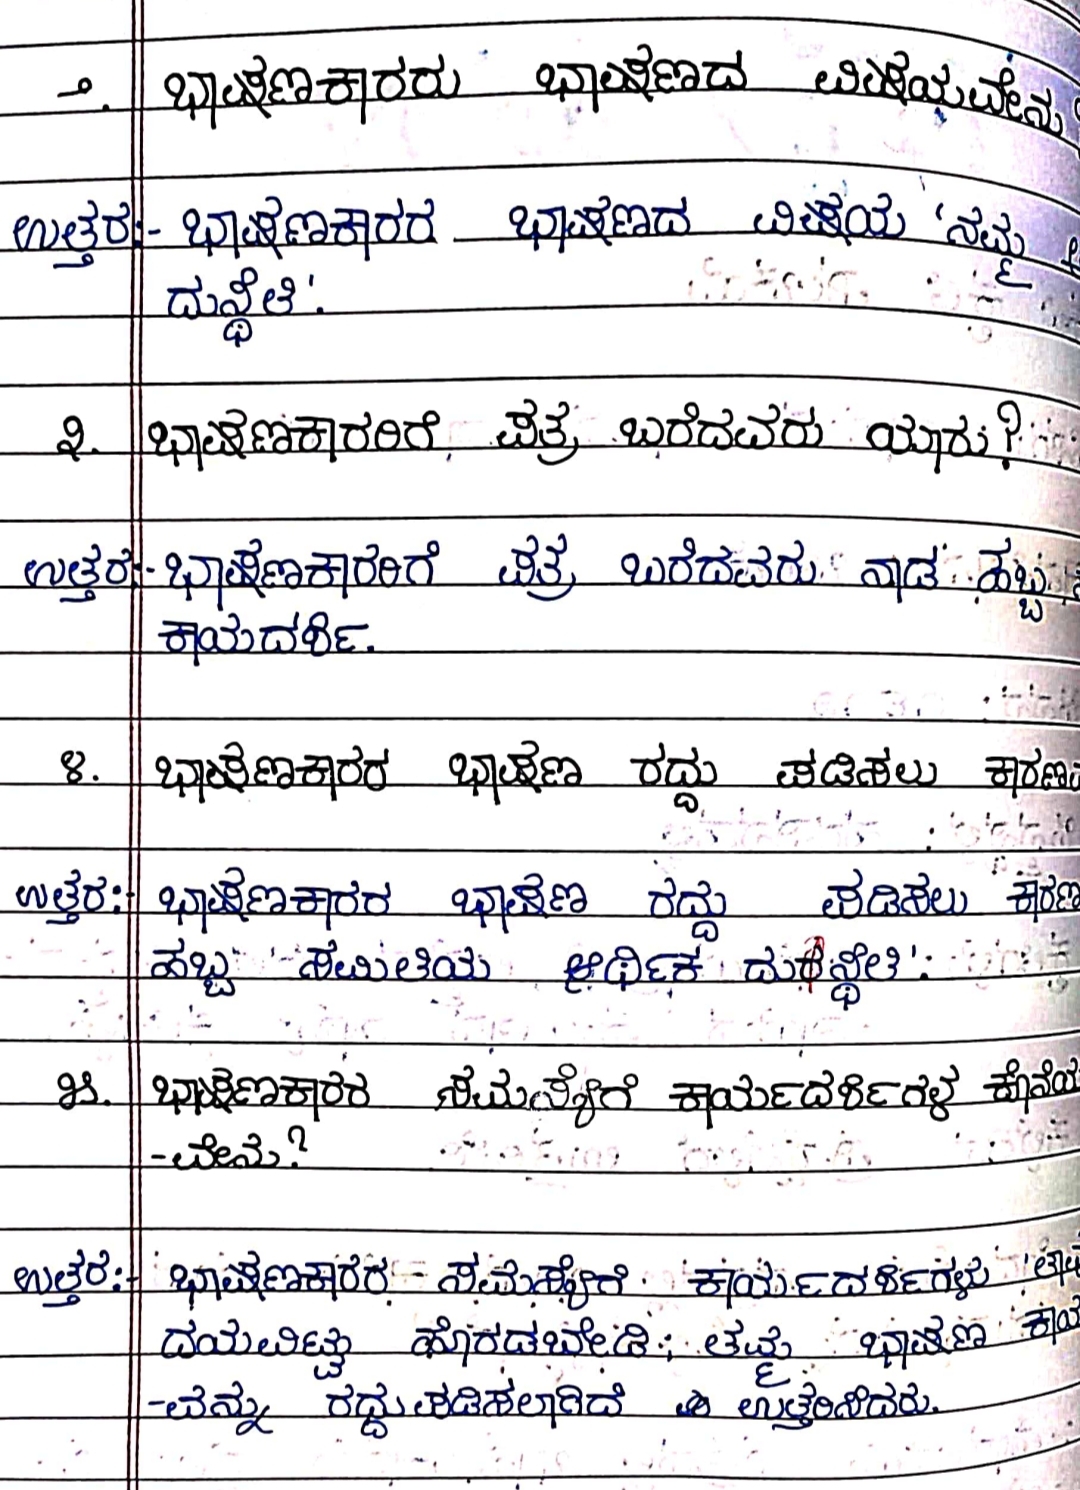 ೧. ಭಾಷಣಕಾರರು ಭಾಷಣದ ವಿಷಯವೇನು
ಉತ್ತರ:- ಭಾಷಣಕಾರರ ಭಾಷಣದ ವಿಷಯ 'ನಮ್ಮ
ದುಸ್ಥಿತಿ'.
೨. ಭಾಷಣಕಾರರಿಗೆ ಪತ್ರ ಬರೆದವರು ಯಾರು?
ಉತ್ತರ:- ಭಾಷಣಕಾರರಿಗೆ ಪತ್ರ ಬರೆದವರು ನಾಡ ಹಬ್ಬ
ಕಾಯದರ್ಶಿ.
೪. ಭಾಷಣಕಾರರ ಭಾಷಣ ರದ್ದು ಪಡಿಸಲು
ಉತ್ತರ:- ಭಾಷಣಕಾರರ ಭಾಷಣ ರದ್ದು ಪಡಿಸಲು ಕಾರಣ
ಹಬ್ಬ ಸಮಿತಿಯ ಆರ್ಥಿಕ ದುಸ್ಥಿತಿ'.
೫. ಭಾಷಣಕಾರರ ಸಮಸ್ಯೆಗೆ ಕಾರ್ಯದರ್ಶಿಗಳ ಕೊನೆಯ
-ವೇನು?
ಉತ್ತರ:- ಭಾಷಣಕಾರರ ಸಮಸ್ಯೆಗೆ ಕಾರ್ಯದರ್ಶಿಗಳು
ದಯವಿಟ್ಟು ಹೊರಡಬೇಡಿ; ತಮ್ಮ ಭಾಷಣ
-ವನ್ನು ರದ್ದುಪಡಿಸಲಾಗಿದೆ ಉತ್ತರಿಸಿದರು.